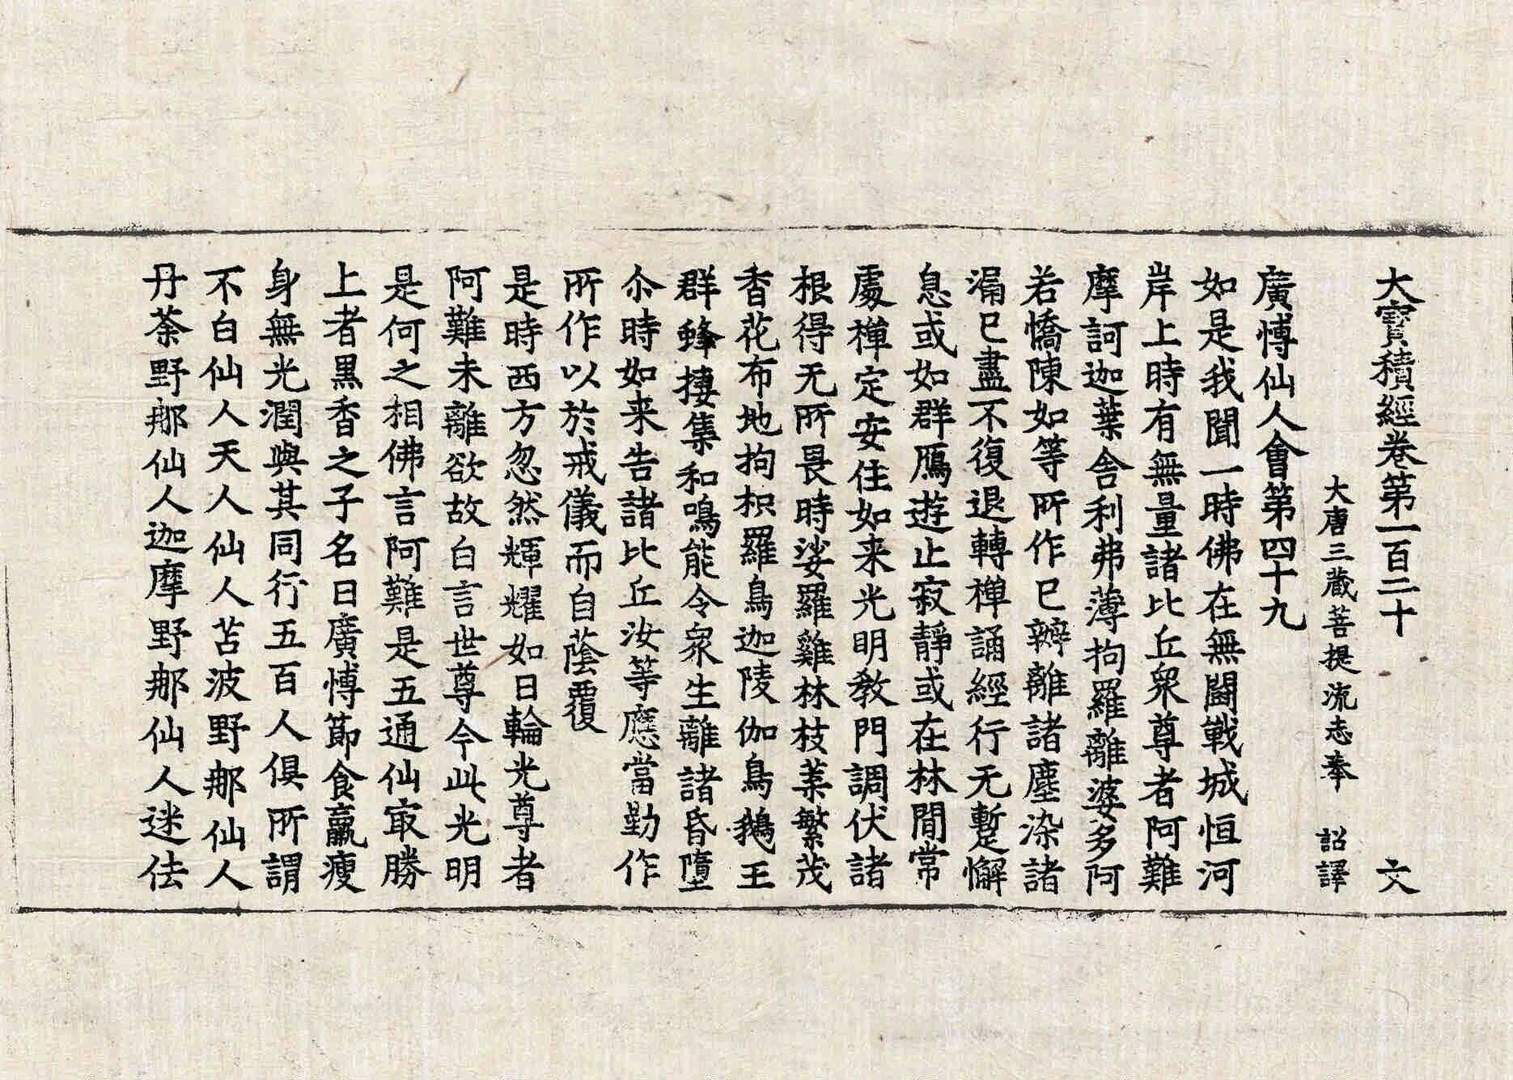 大寳積經卷第一百二十 文
大唐三藏菩提流志奉 詔譯
廣愽仙人會第四十九
如是我聞一時佛在無鬪戰城恒河
岸上時有無量諸比丘衆尊者阿難
摩訶迦葉舎利弗薄拘羅離婆多阿
若憍陳如等所作已辦離諸塵染諸
漏已盡不復退轉禪誦經行无蹔懈
息或如群鴈遊止寂靜或在林間常
處禪定安住如来光明教門調伏諸
根得无所畏時娑羅雞林枝葉繁茂
香花布地拘枳羅鳥迦陵伽鳥鵝王
群蜂捿集和鳴能令衆生離諸昏墮
尒時如来告諸比丘汝等應當勤作
所作以於戒儀而自蔭覆
是時西方忽然輝耀如日輪光尊者
阿難未離欲故白言世尊今此光明
是何之相佛言阿難是五通仙㝡勝
上者黒香之子名曰廣愽節食羸瘦
身無光潤與其同行五百人俱所謂
不白仙人天人仙人苫波野那仙人
丹荼野那仙人迦摩野那仙人迷佉